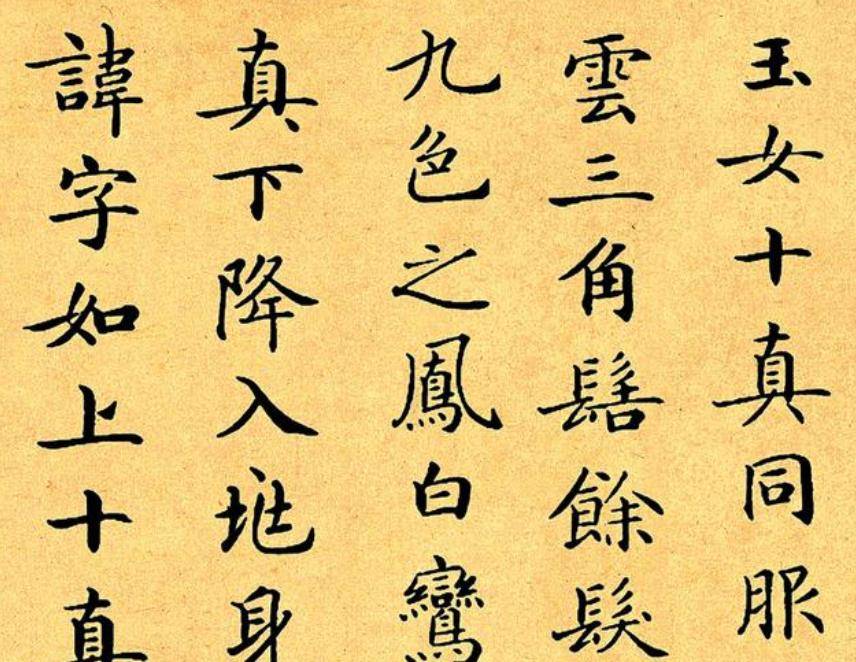 玉女十真同服
雲三角髻餘髮
九色之鳳白鸞
真下降入垗身
諱字如上十真